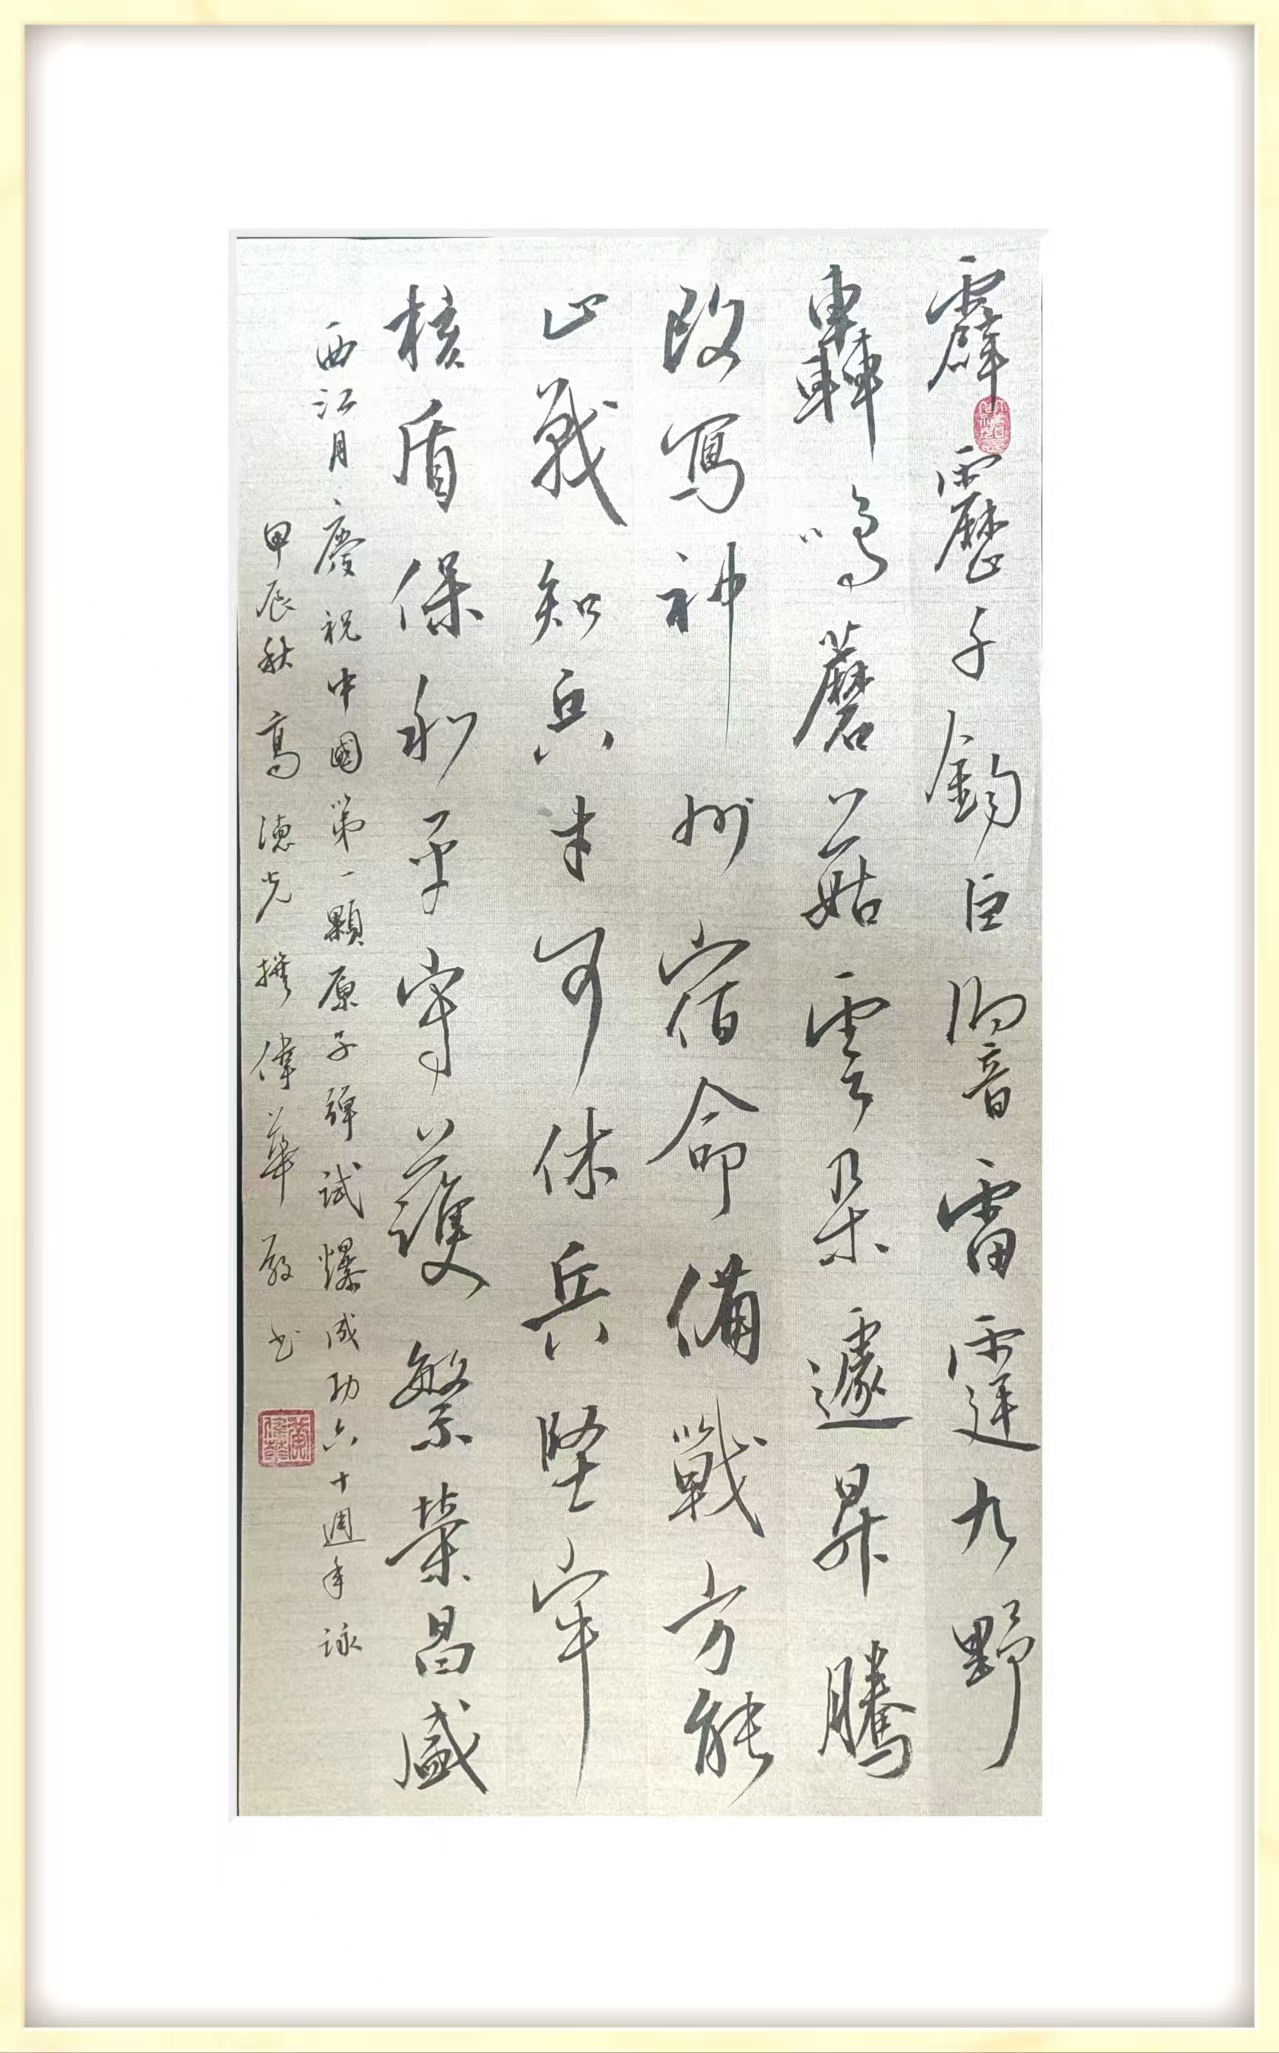 霹靂千鈞巨响音雷霆九野
轟鳴蘑菇雲朵遽昇騰
改寫神州宿命備戰方能
止戰知兵才可休兵堅牢
核盾保和平守護繁榮昌盛
西江月·慶祝中國第一顆原子彈試爆成功六十週年詠
甲辰秋高德光撰偉華敬书